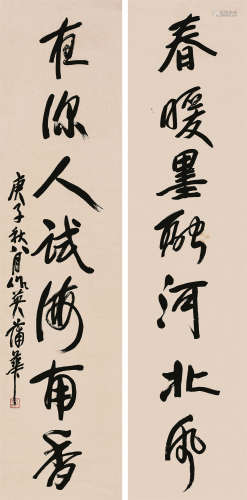 春暖墨融河北
夜深人試海南香
庚子秋八月作英蒲華